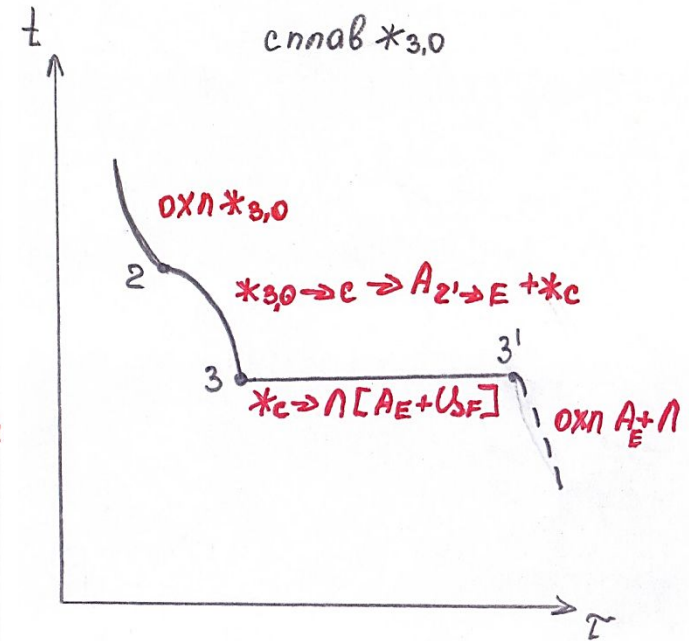 t
сплав ж3,0
охл ж3,0
2
ж3,0→C → A2'→E + жC
3
3'
жC→Л[AE+ЦF]
охл AE+Л
τ